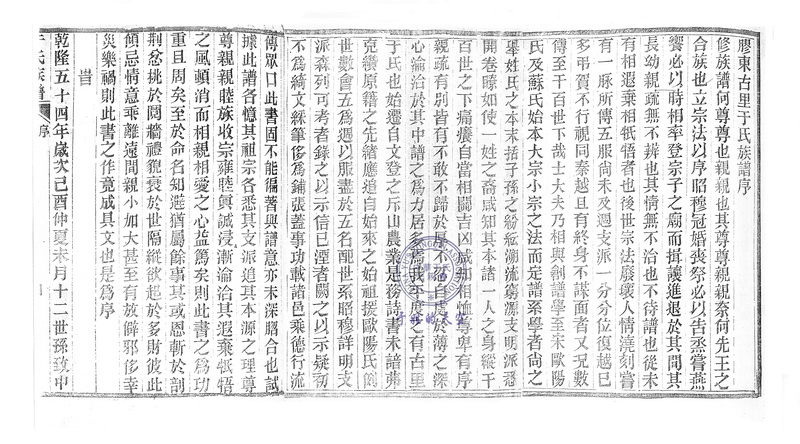 膠東古里于氏族譜序
修族譜何尊尊也親親也其尊尊親親奈何先王之
合族也立宗法以序昭穆冠婚喪祭必以告烝嘗燕
饗必以時相率登宗子之廟而揖讓進退於其間其
長幼親疏無不辨也其情無不洽也不待譜也從未
有相遐棄相牴牾者也後世宗法廢壞人情澆刻嘗
有一脈所傳五服尚未及週支派一分分位復越已
多弔賀不行視同秦越且有終身不謀面者又況數
傳至千百世下哉士大夫乃相與創譜學至宋歐陽
氏及蘇氏始本大宗小宗之法而定譜系學者尚之
舉姓氏之本末括子孫之紛紜溯流窮源支明派悉
開卷瞭如使一姓之裔咸知其本諸一人之身縱千
百世之下痛癢自當相關吉凶咸那相恤尊卑有序
親疏有別皆有不敢不歸於厚不忍自處於薄之深
心淪洽於其中譜之為力居多焉我平度之有古里
于氏也始遷自文登之斥山農業是務詩書未諳弗
克纘原籍之先緒應追自始來之始祖援歐陽氏例
世數會五為週以服盡於五名配世系昭穆詳明支
派森列可考者錄之以示信已湮者闕之以示疑初
不為綺文綵筆侈為鋪張蓋事功載諸邑乘德行流
傳眾口此書固不能舉與譜意亦未深膠合也試
據此譜各憶其祖宗各悉其支派追其本源之理尊
尊親親睦族收宗雍睦與誠浸漸淪洽其遐棄牴牾
之風頓消而相親相愛之心益篤矣則此書之為功
重且周矣至於命名知避猶屬餘事其或恩斬於剖
荊忿挑於鬩牆禮貌衰於世隔縱欲起於多財彼此
傾忌情意乖離遠間親小加大甚至有放僻邪侈幸
災樂禍則此書之作竟成具文也是為序
旹
乾隆五十四年歲次己酉仲夏未月十二世孫致中
于氏族譜 序